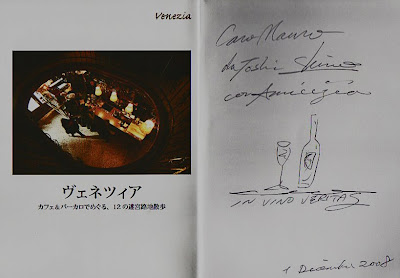 Venezia
ヴェネツィア
カフェ&バーカロでめぐる、12の迷宮路地散歩
Caro Mauro
da Toshi
con Amicizia
IN VINO VERITAS
1 Dicembre 2008